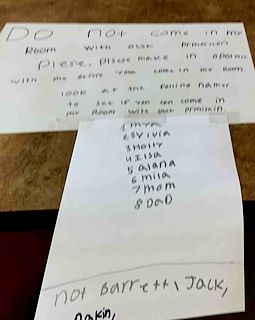 DO not come in my
Room with out prmishen
Plese, Plese make in apotmet
with me before you come in my room
look at the foling names
to see if you can come in
my Room with out prmishin
1 mya
2 Sylvia
3 Holly
4 Ilsa
5 alana
6 mila
7 mom
8 DaD
not Barrett, Jack,
Dakin,